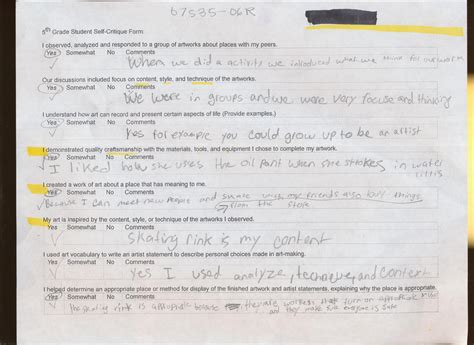 67535-06R
5th Grade Student Self-Critique Form:
I observed, analyzed and responded to a group of artworks about places with my peers.
Yes Somewhat No Comments
When we did a activity we introduced what we think for our
Our discussions included focus on content, style, and technique of the artworks.
Yes Somewhat No Comments
We were in groups and we were very focuse and thinking
I understand how art can record and present certain aspects of life (Provide examples.)
Yes Somewhat No Comments
Yes for example you could grow up to be an artist
I demonstrated quality craftsmanship with the materials, tools, and equipment I chose to complete my artwork.
Yes Somewhat No Comments
I liked how she uses the oil pant when she strokes in water
I created a work of art about a place that has meaning to me.
Yes Somewhat No Comments
Because I can meet new people and my friends also buy things
from the store
My art is inspired by the content, style, or technique of the artworks I observed.
Yes Somewhat No Comments
skating rink is my content
I used art vocabulary to write an artist statement to describe personal choices made in art-making.
Yes Somewhat No Comments
Yes I used analyze, techneque, and context
I helped determine an appropriate place or method for display of the finished artwork and artist statements, explaining why the place is appropriate.
Yes Somewhat No Comments
The skating rink is appropriate because they are workers that turn on appropriate music
and they make sure everyone is safe